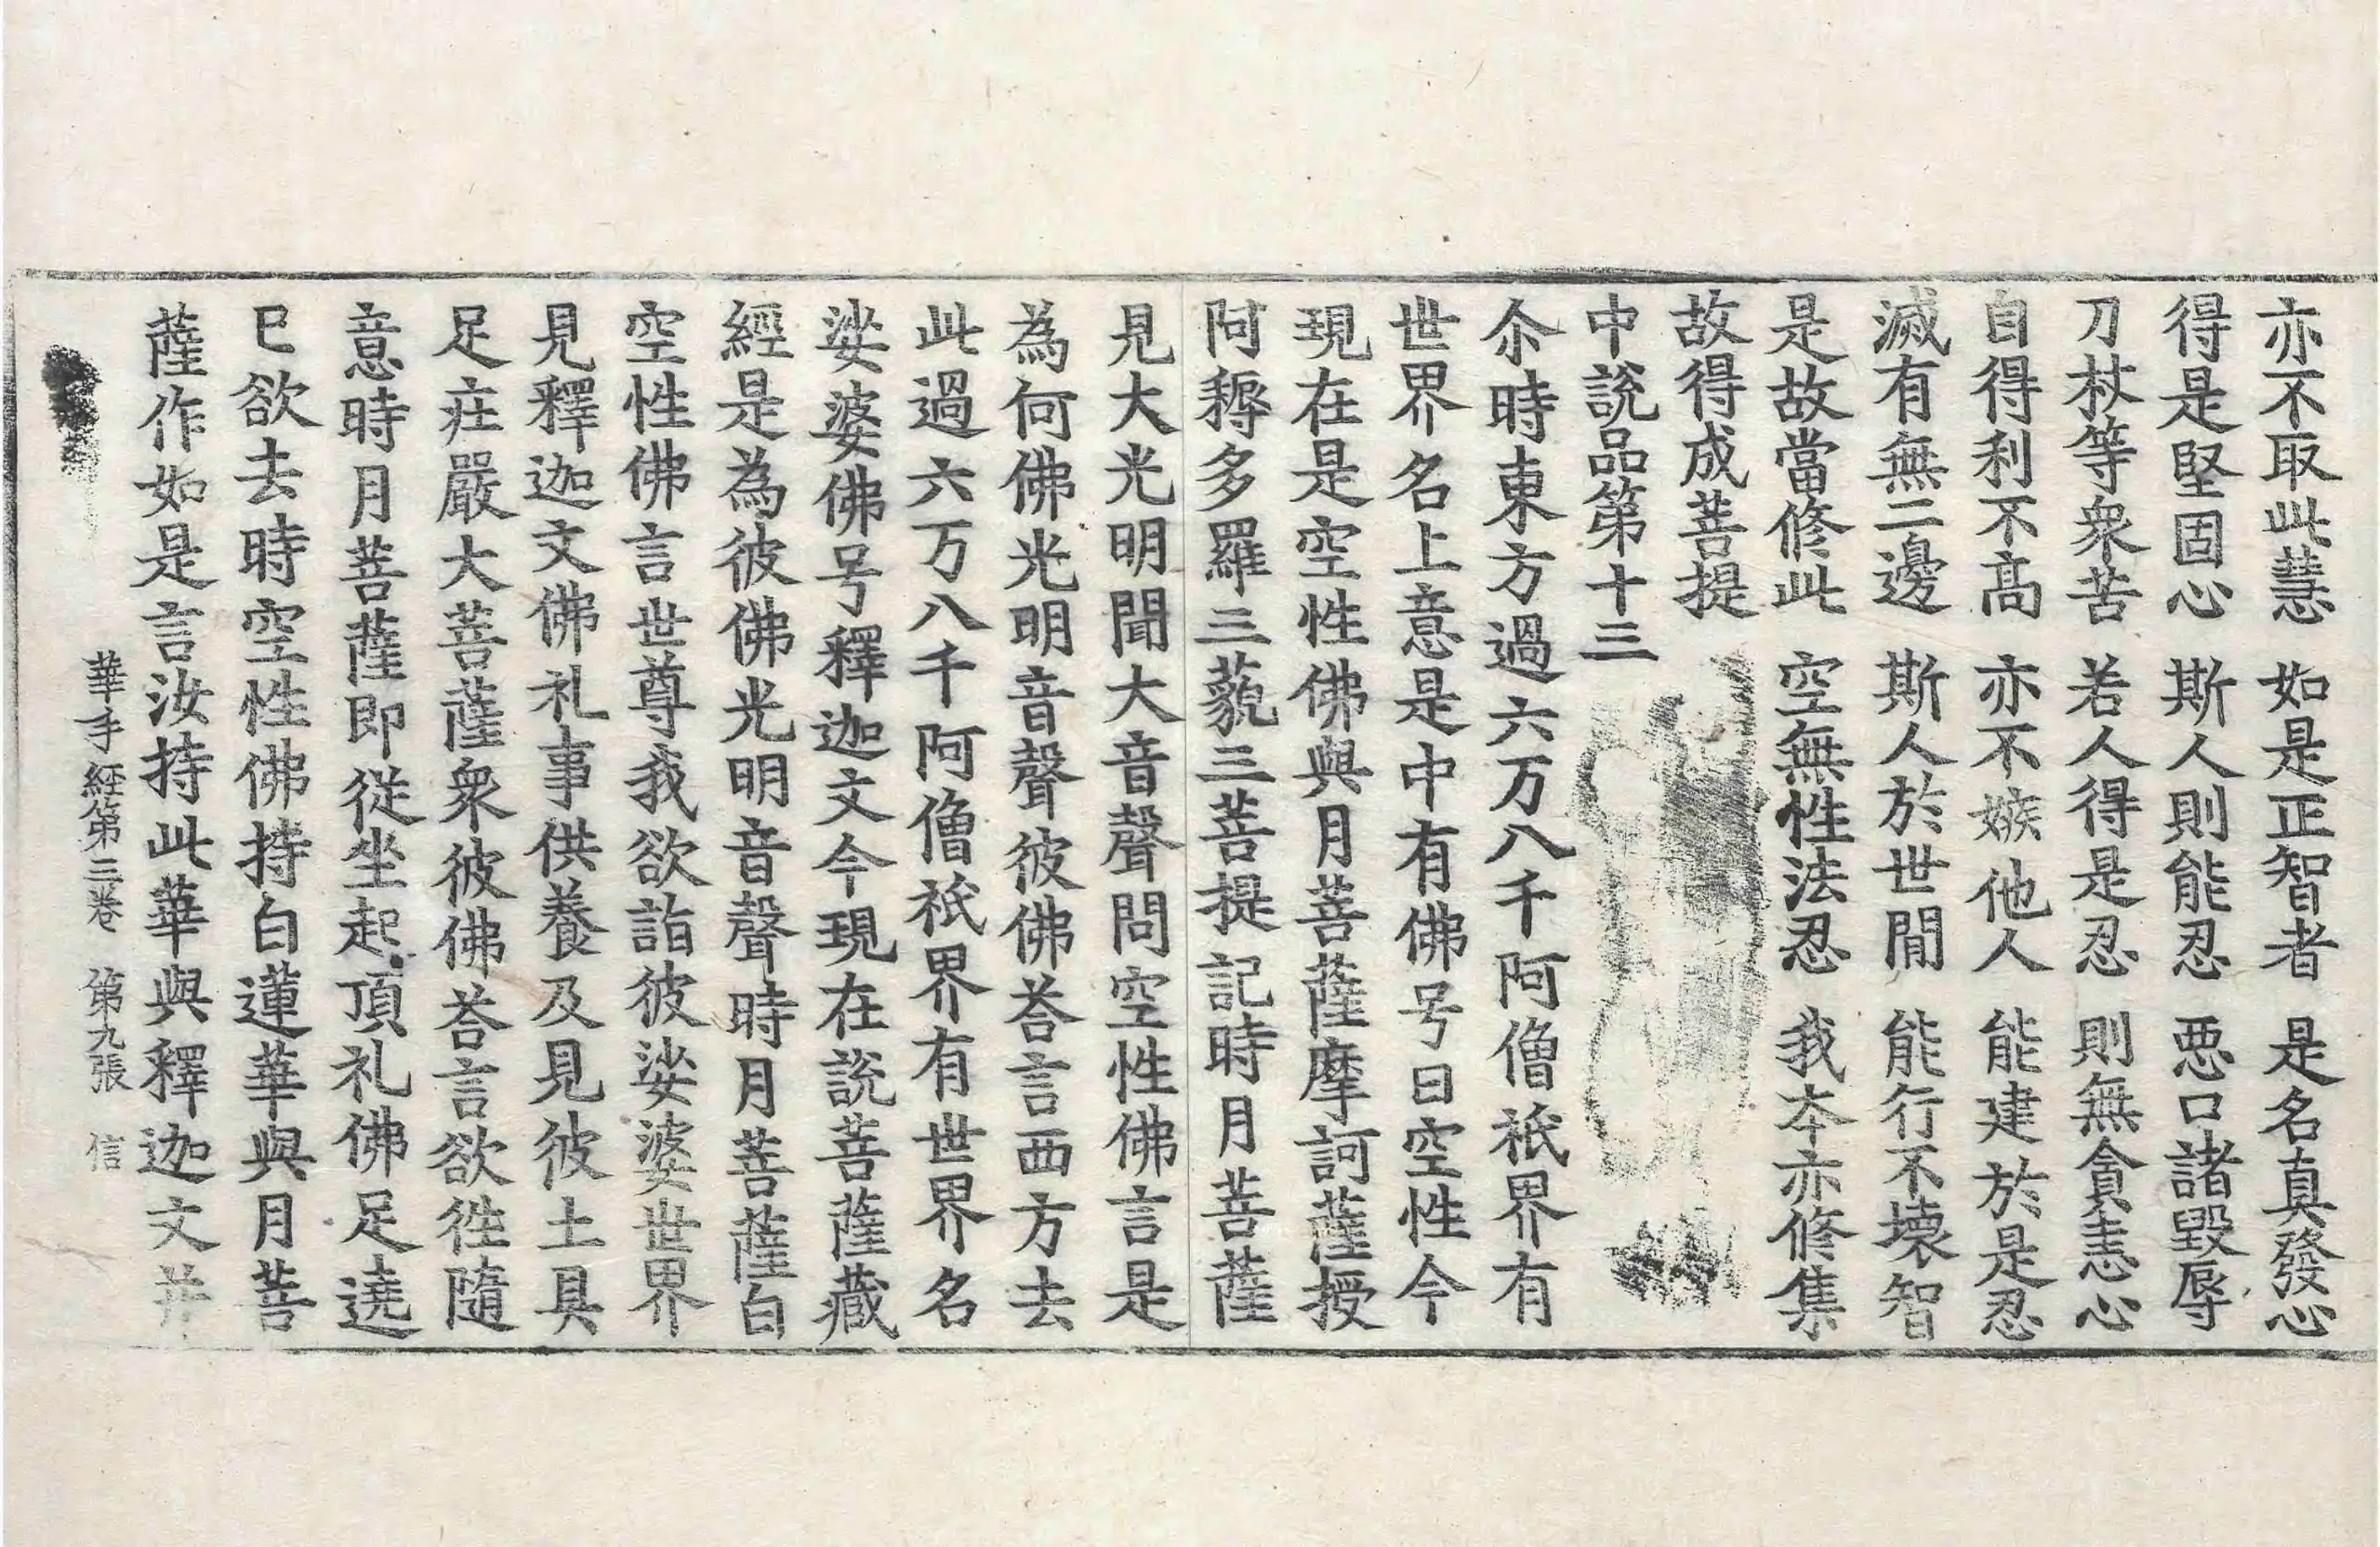 亦不取此慧 如是正智者 是名真發心
得是堅固心 斯人則能忍 惡口諸毀辱
刀杖等衆苦 若人得是忍 則無貪恚心
自得利不高 亦不嫉他人 能建於是忍
滅有無二邊 斯人於世間 能行不壞智
是故當修此 空無性法忍 我本亦修集
故得成菩提
中說品第十三
尒時東方過六万八千阿僧祇界有
世界名上意是中有佛号曰空性今
現在是空性佛與月菩薩摩訶薩授
阿耨多羅三藐三菩提記時月菩薩
見大光明聞大音聲問空性佛言是
為何佛光明音聲彼佛荅言西方去
此過六万八千阿僧祇界有世界名
娑婆佛号釋迦文今現在說菩薩藏
經是為彼佛光明音聲時月菩薩白
空性佛言世尊我欲詣彼娑婆世界
見釋迦文佛礼事供養及見彼土具
足莊嚴大菩薩衆彼佛荅言欲徃隨
意時月菩薩即從坐起頂礼佛足遶
已欲去時空性佛持白蓮華與月菩
薩作如是言汝持此華與釋迦文并
華手經第三卷 第九張 信